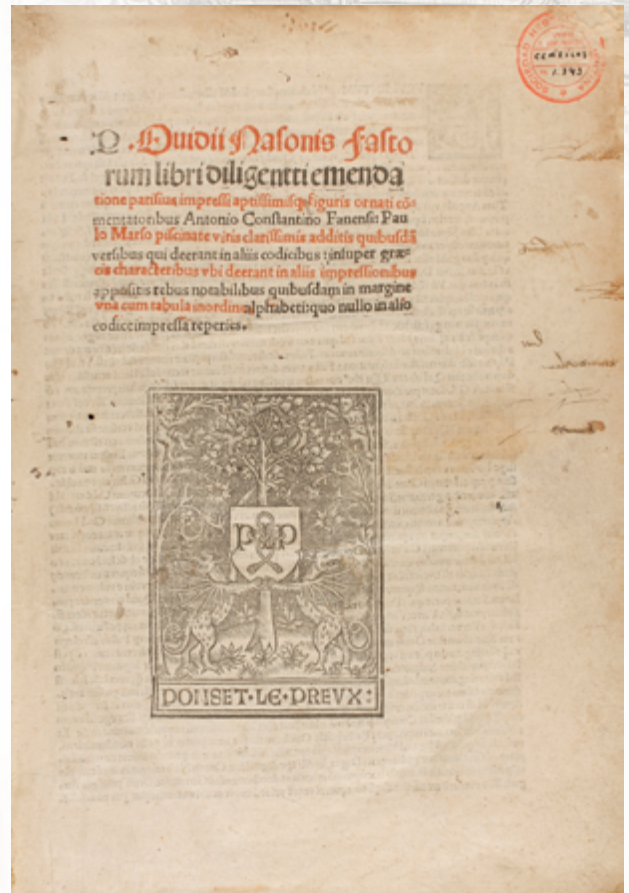 P. Ouidii Nasonis Fasto
rum libri diligenti emenda
tione parisius impressi aptissimisq; figuris ornati cō
mentatoribus Antonio Constantino Fanensi: Pau
lo Marso piscinate viris clarissimis additis quibusdā
versibus qui deerant in aliis codicibus: insuper græ-
cis characteribus vbi deerant in aliis impressionibus
appositis rebus notabilibus quibusdam in margine
vna cum tabula in ordine alphabeti: quo nullo in alio
codice impressa reperies.
PLP
PONSET·LE·PREVX:
SOCIEDAD
1.343